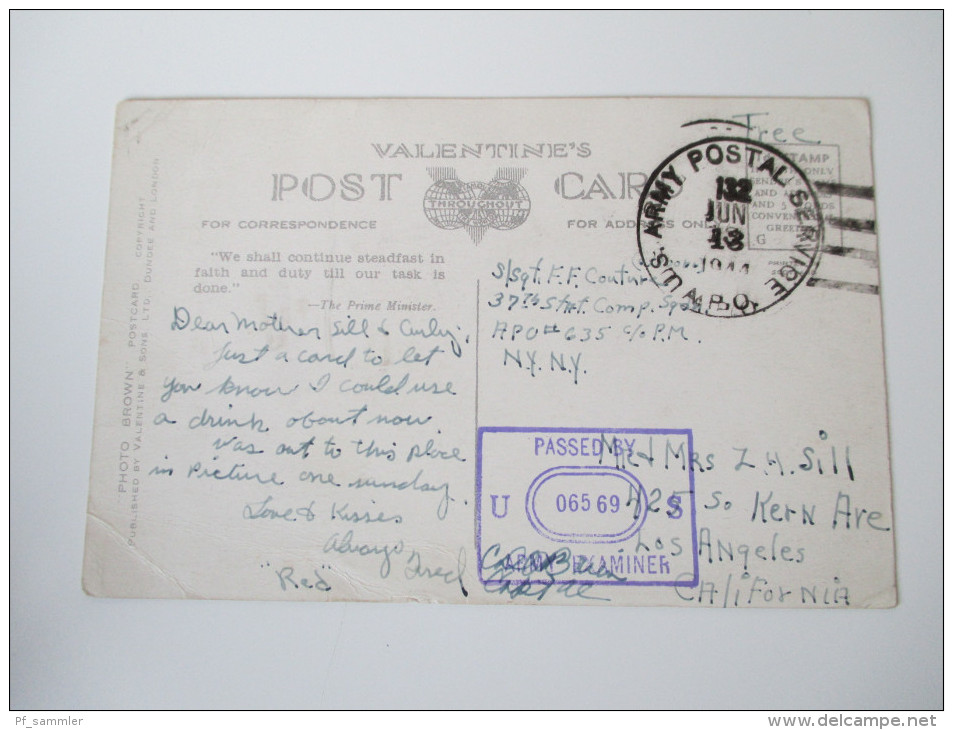 Free
VALENTINE'S
POST CARD
THROUGHOUT
FOR CORRESPONDENCE
FOR ADDRESS ONLY
STAMP
G
U.S. ARMY POSTAL SERVICE A.P.O.
132
JUN
13
1944
"We shall continue steadfast in
faith and duty till our task is
done."
—The Prime Minister.
"PHOTO BROWN" POSTCARD. COPYRIGHT
PUBLISHED BY VALENTINE & SONS LTD, DUNDEE AND LONDON
S/Sgt. F. F. Couture
37th Strat. Comp. Sqd
APO # 635 c/o P.M.
N.Y. N.Y.
Dear Mother Sill & Curley,
Just a card to let
you know I could use
a drink about now
Was out to this place
in picture one sunday.
Love & Kisses
Always
"Red" Fred
PASSED BY
U 06569 S
ARMY EXAMINER
Mr & Mrs L. H. Sill
425 So Kern Ave
Los Angeles
California
Pf_sammler
http://www.delcampe.net